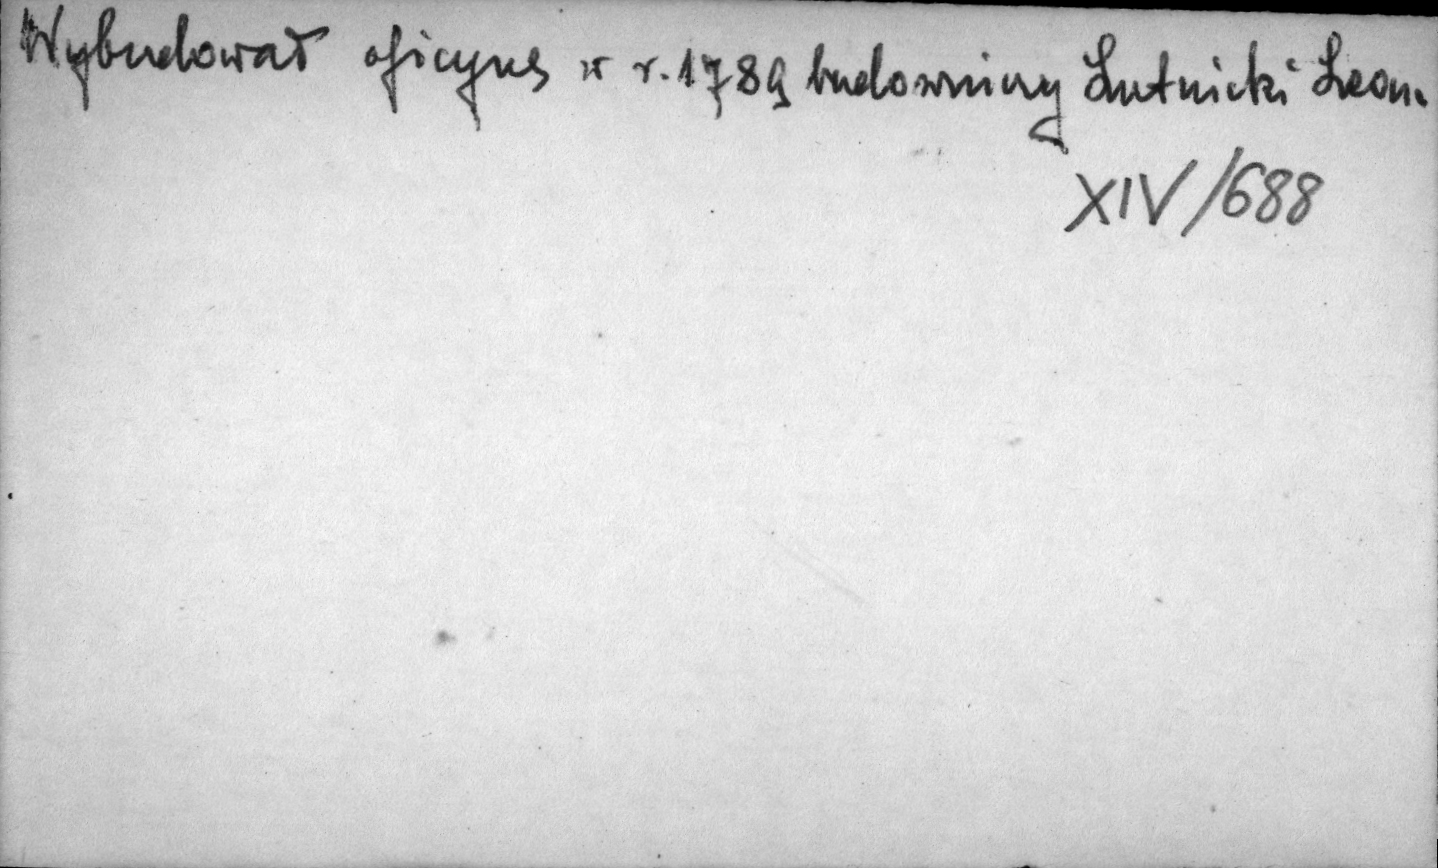 Wybudował oficynę w r. 1789 budowniczy Lutnicki Leon.
XIV/688